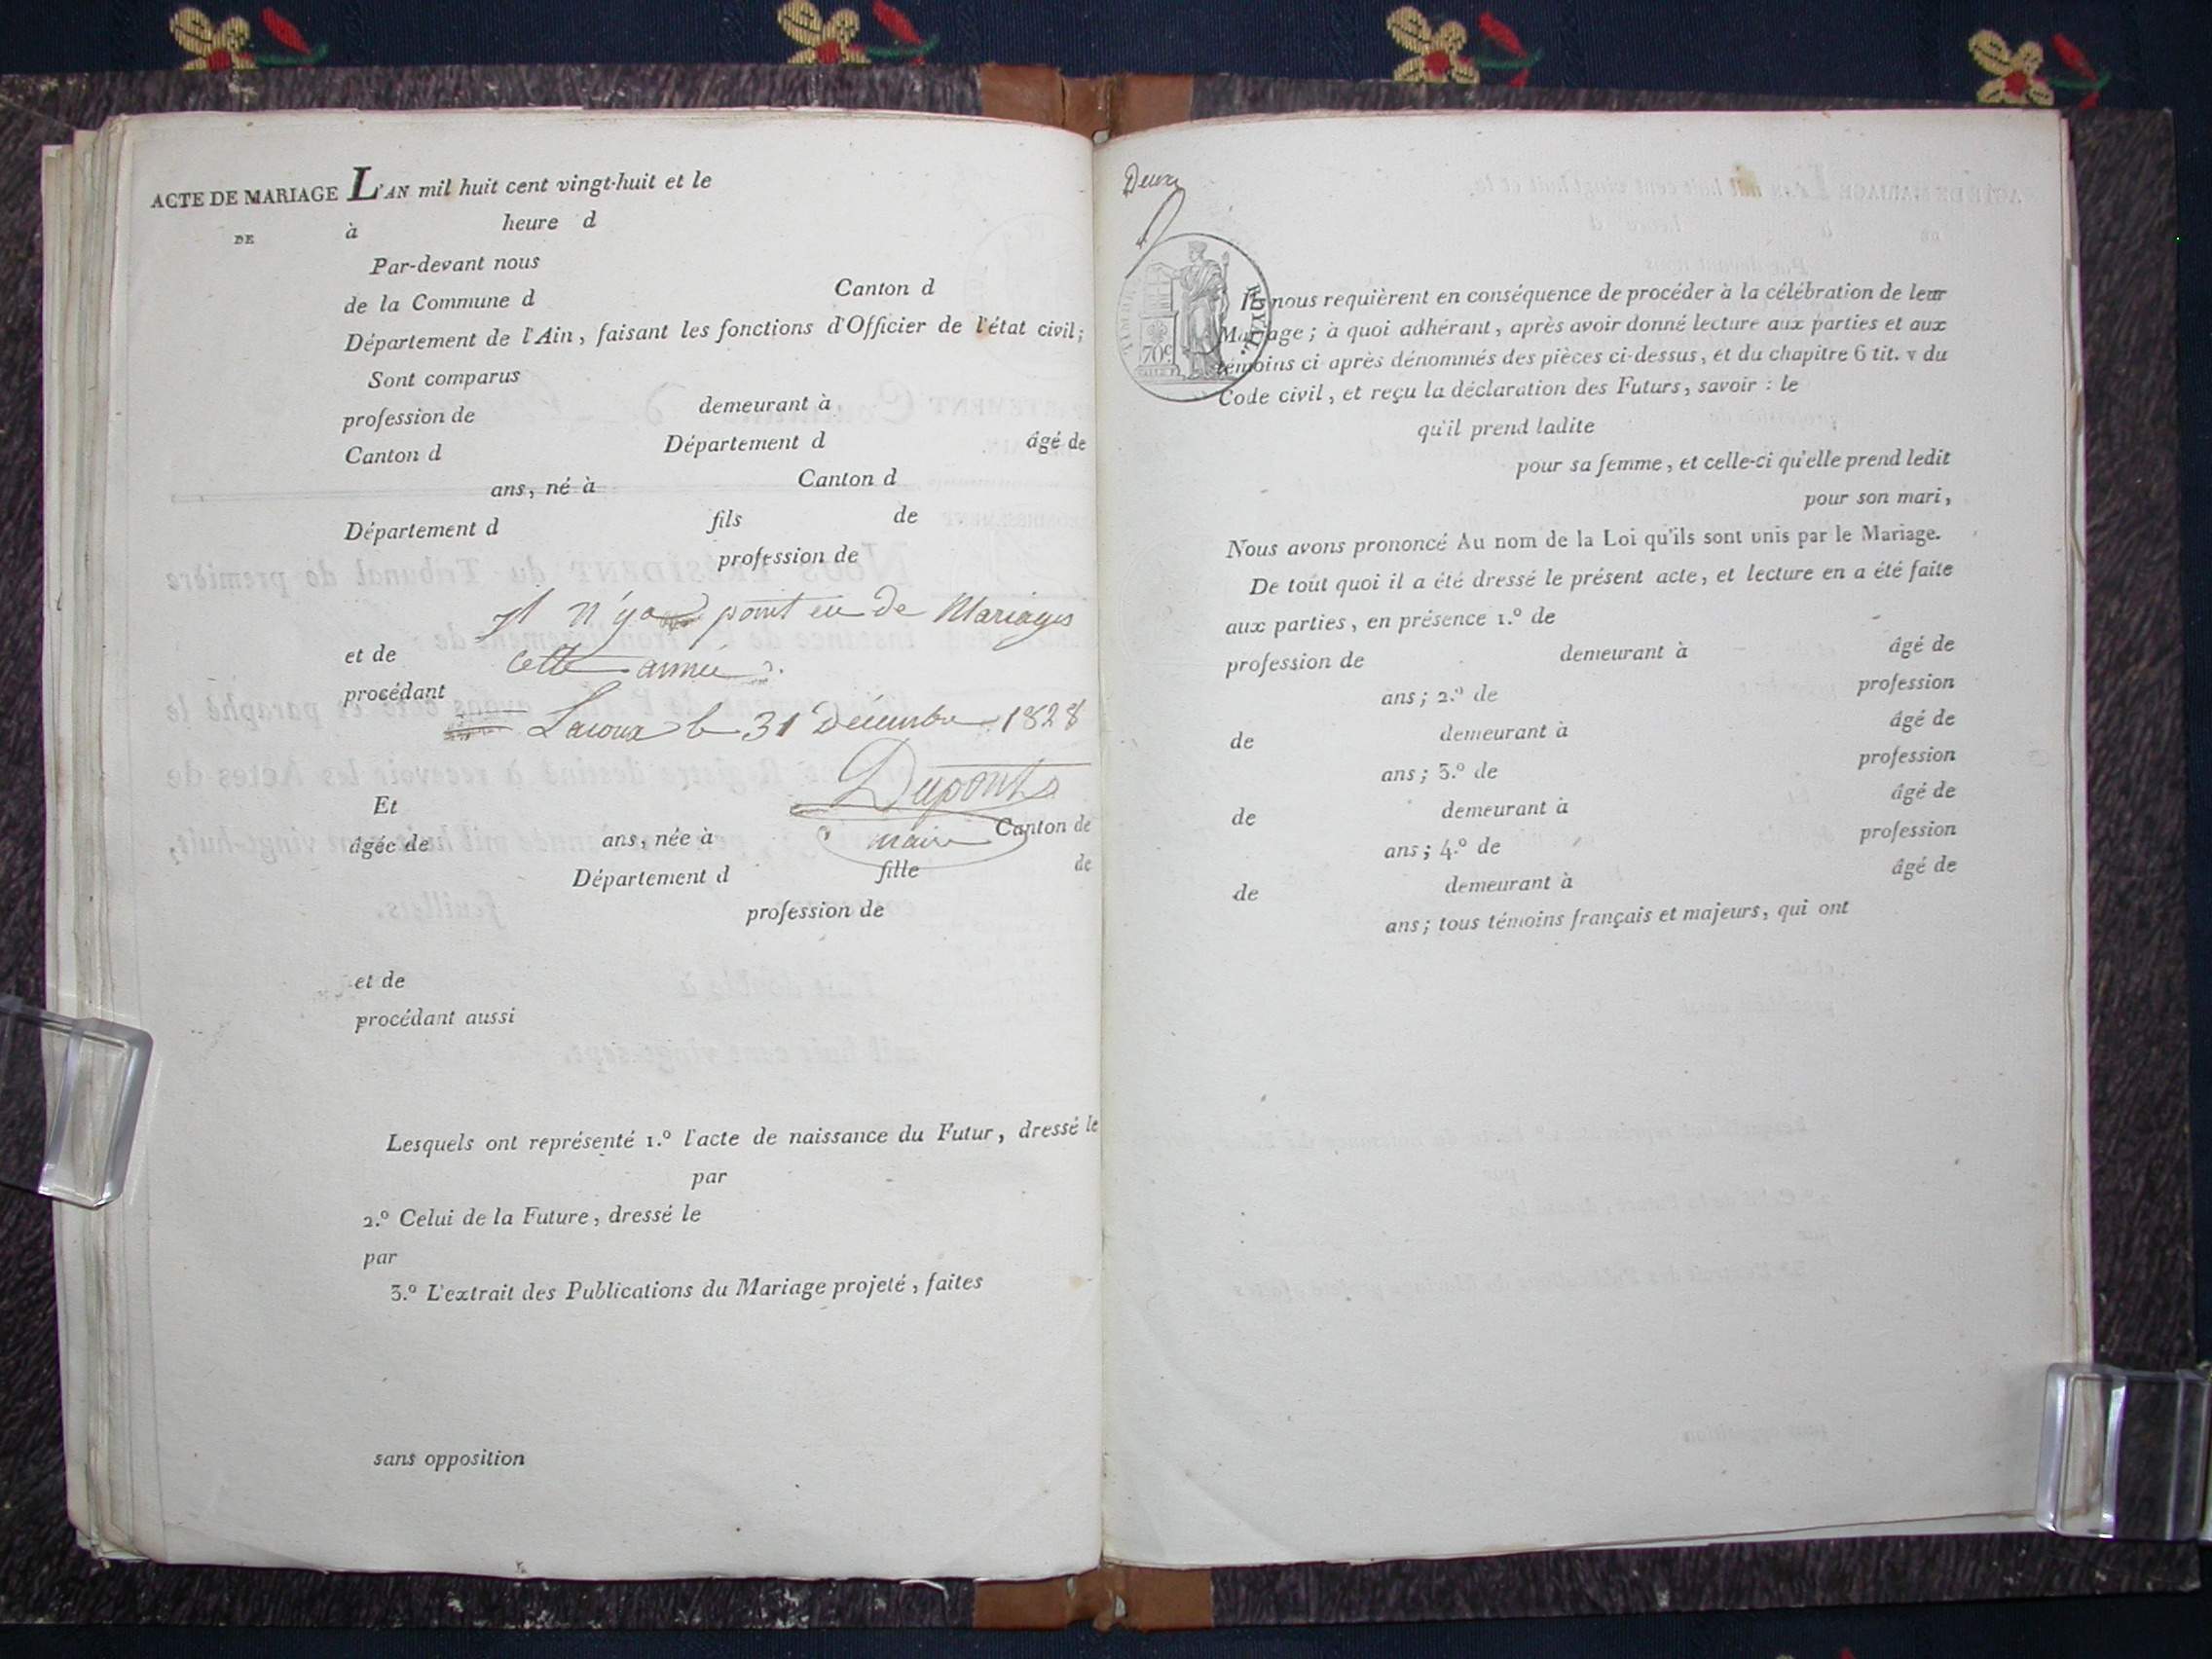 ACTE DE MARIAGE L'AN mil huit cent vingt-huit et le
DE à heure d
Par-devant nous
de la Commune d Canton d
Département de l'Ain, faisant les fonctions d'Officier de l'état civil;
Sont comparus
profession de demeurant à
Canton d Département d âgé de
ans, né à Canton d
Département d fils de
profession de
Il n'y a point eu de Mariages
et de cette année.
procédant
Lacoux le 31 Décembre 1828
Dupont
Et
maire
âgée de ans, née à Canton de
Département d fille de
profession de
et de
procédant aussi
Lesquels ont représenté 1.º l'acte de naissance du Futur, dressé le
par
2.º Celui de la Future, dressé le
par
3.º L'extrait des Publications du Mariage projeté, faites
sans opposition
Deux
TIMBRE ROYAL.
70c
Ils nous requièrent en conséquence de procéder à la célébration de leur
Mariage; à quoi adhérant, après avoir donné lecture aux parties et aux
témoins ci après dénommés des pièces ci-dessus, et du chapitre 6 tit. v du
Code civil, et reçu la déclaration des Futurs, savoir : le
qu'il prend ladite
pour sa femme, et celle-ci qu'elle prend ledit
pour son mari,
Nous avons prononcé Au nom de la Loi qu'ils sont unis par le Mariage.
De tout quoi il a été dressé le présent acte, et lecture en a été faite
aux parties, en présence 1.º de
profession de demeurant à âgé de
ans; 2.º de profession
de demeurant à âgé de
ans; 3.º de profession
de demeurant à âgé de
ans; 4.º de profession
de demeurant à âgé de
ans; tous témoins français et majeurs, qui ont